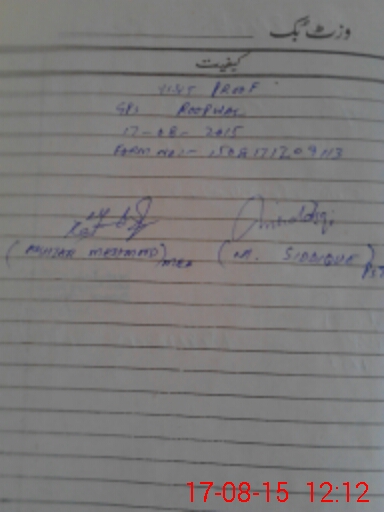 وزٹ بک
کیفیت
VISIT PROOF
GPS ROOPWAL
17-08-2015
FORM NO:-
( MEHMMD) MEA
(M. SIDDIQUE) PST
17-08-15 12:12